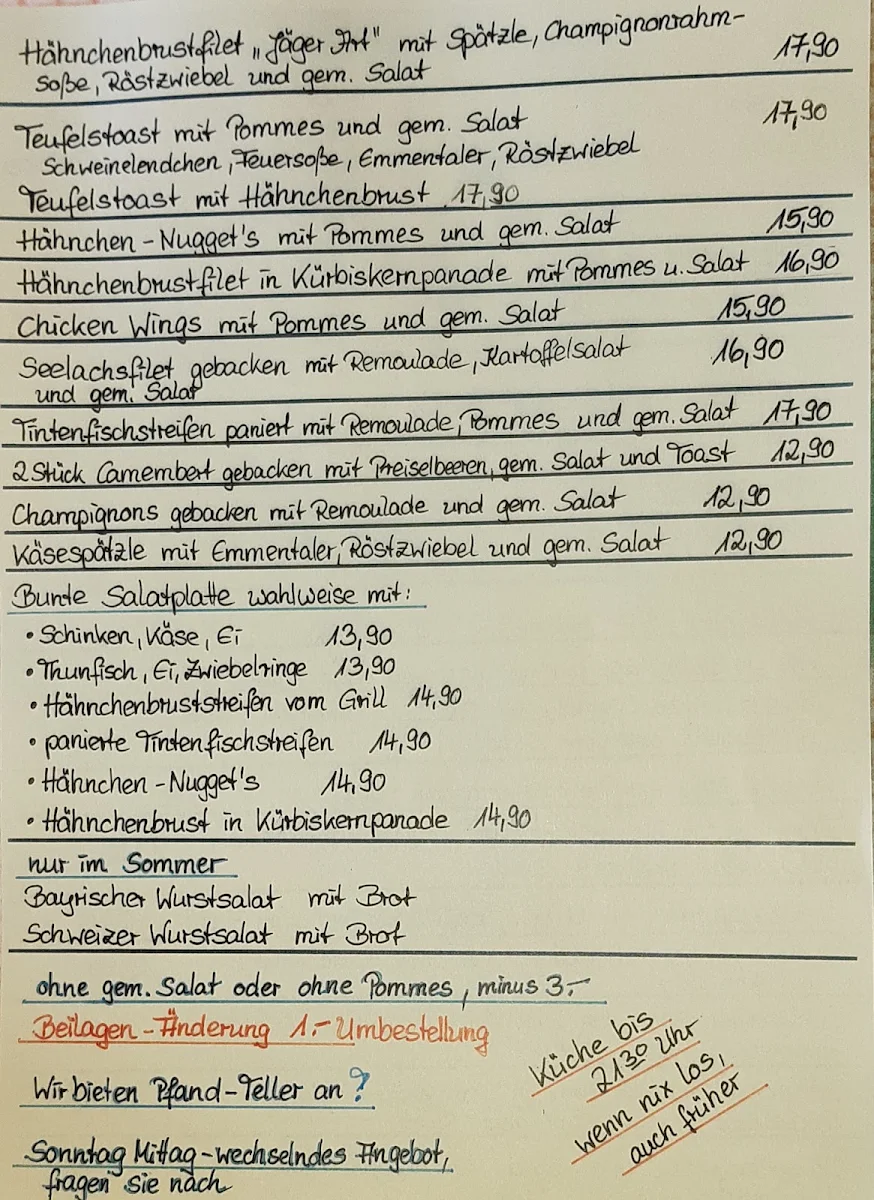 Hähnchenbrustfilet „Jäger Art" mit Spätzle, Champignonrahm- 17,90
Soße, Röstzwiebel und gem. Salat
Teufelstoast mit Pommes und gem. Salat 17,90
Schweinelendchen, Feuersoße, Emmentaler, Röstzwiebel
Teufelstoast mit Hähnchenbrust 17,90
Hähnchen-Nugget's mit Pommes und gem. Salat 15,90
Hähnchenbrustfilet in Kürbiskernpanade mit Pommes u. Salat 16,90
Chicken Wings mit Pommes und gem. Salat 15,90
Seelachsfilet gebacken mit Remoulade, Kartoffelsalat 16,90
und gem. Salat
Tintenfischstreifen paniert mit Remoulade, Pommes und gem. Salat 17,90
2 Stück Camembert gebacken mit Preiselbeeren, gem. Salat und Toast 12,90
Champignons gebacken mit Remoulade und gem. Salat 12,90
Käsespätzle mit Emmentaler, Röstzwiebel und gem. Salat 12,90
Bunte Salatplatte wahlweise mit:
• Schinken, Käse, Ei 13,90
• Thunfisch, Ei, Zwiebelringe 13,90
• Hähnchenbruststreifen vom Grill 14,90
• panierte Tintenfischstreifen 14,90
• Hähnchen-Nugget's 14,90
• Hähnchenbrust in Kürbiskernpanade 14,90
nur im Sommer
Bayrischer Wurstsalat mit Brot
Schweizer Wurstsalat mit Brot
ohne gem. Salat oder ohne Pommes, minus 3,-
Beilagen-Änderung 1.- Umbestellung
Wir bieten Pfand-Teller an?
Sonntag Mittag-wechselndes Angebot,
fragen sie nach
Küche bis
21³⁰ Uhr
wenn nix los,
auch früher